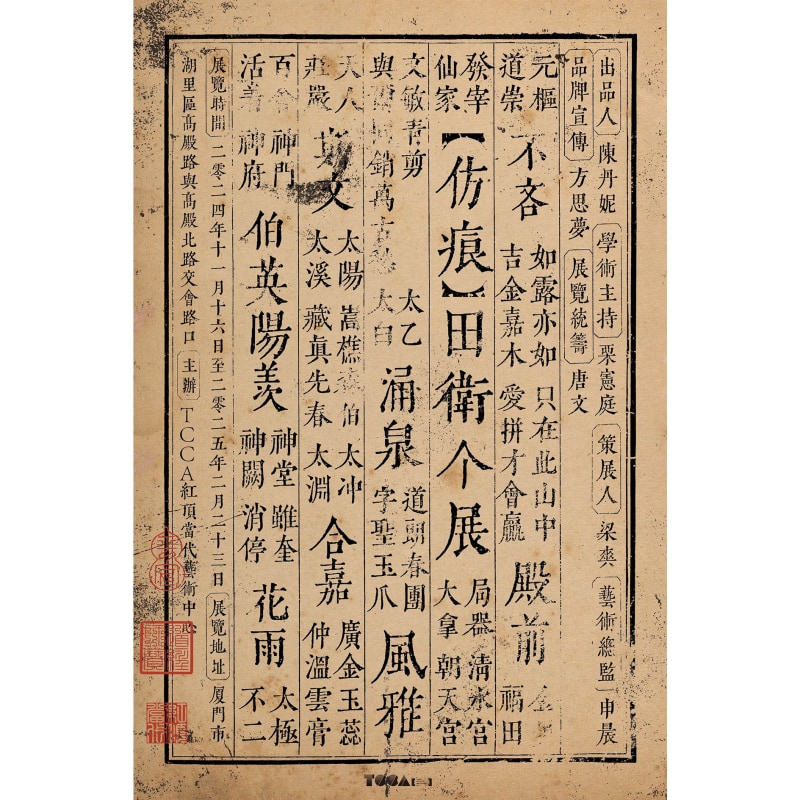 出品人 陳丹妮 學術主持 栗憲庭 策展人 梁爽 藝術總監 申晨
品牌宣傳 方思夢 展覽統籌 唐文
元樞 不吝 如露亦如 只在此山中 殿前
道崇 吉金嘉木 愛拼才會贏 福田
發宰 【仿痕】田衛个展 局器 清水宮
仙家 大拿 朝天宮
文敏青剪 太乙 涌泉 道朝春團 風雅
與 銷萬古 太白 字聖玉爪
天人 斯文 太陽 嵩樵 伯 太冲 合嘉 廣金玉蕊
莊嚴 太溪 藏眞先春 太淵 仲溫雲膏
百會 神門 伯英陽羨 神堂 雖奎 花雨 太極
活着 神府 神闕 消停 不二
展覽時間 二零二四年十一月十六日至二零二五年二月二十三日 展覽地址 厦門市
湖里區高殿路與高殿北路交會路口 主辦 TCCA紅頂當代藝術中心
TCCA【三】